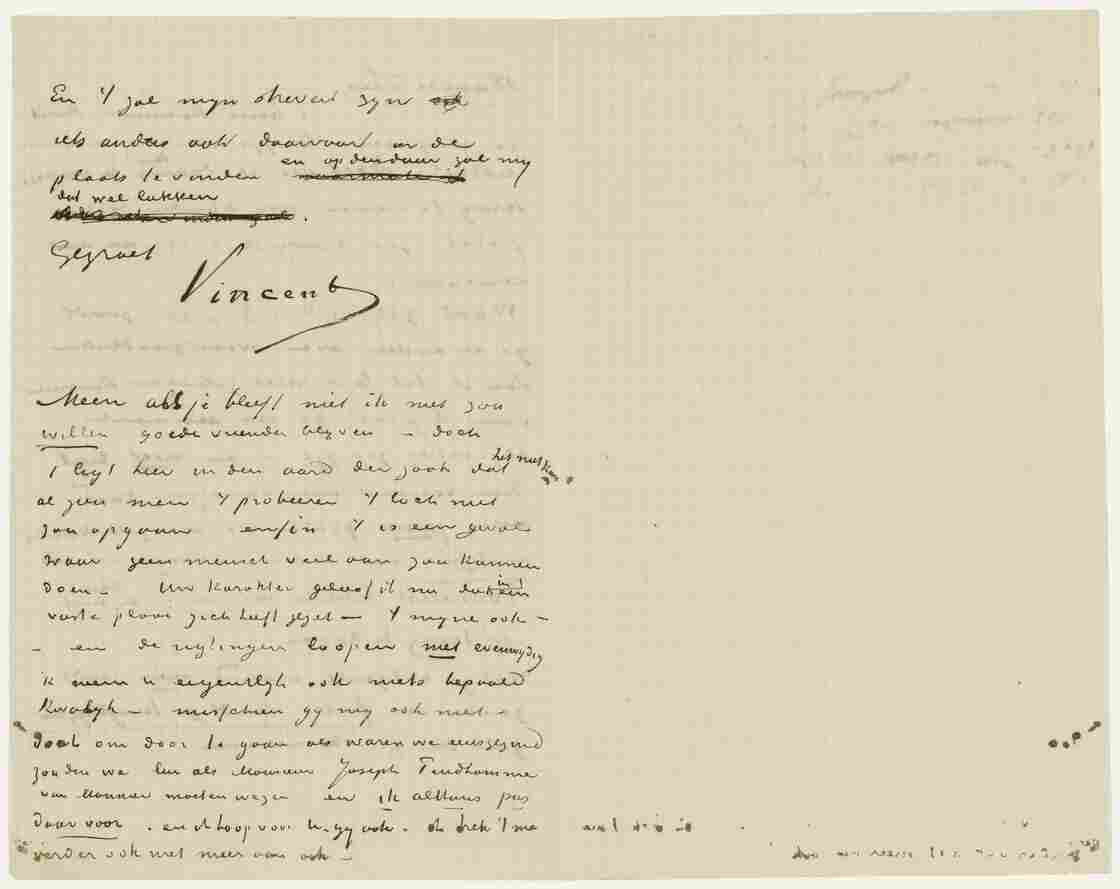 En 't zal mijn streven zijn ook
iets anders ook daarvoor in de
en op den duur zal mij
plaats te vinden
dat wel lukken
.
Gegroet
Vincent
Meen als je blieft niet ik niet zou
willen goede vrienden blijven – doch
't ligt hier in den aard der zaak dat het niet kan
al zou men 't probeeren 't toch niet
zou opgaan enfin 't is een geval
waar geen mensch veel aan zou kunnen
doen – Uw karakter geloof ik nu dat in
vaste plooi zich heeft gezet – 't mijne ook –
– en de rigtingen loopen niet evenwijdig
ik neem U eigentlijk ook niets bepaald
kwalijk – misschien gij mij ook niet –
doch om door te gaan als waren we eensgezind
zouden we lui als Monsieur Joseph Prudhomme
van Monnier moeten wezen en ik althans pas
daar voor . en ik hoop voor U gij ook . ik trek 't me
verder ook niet meer aan ook –